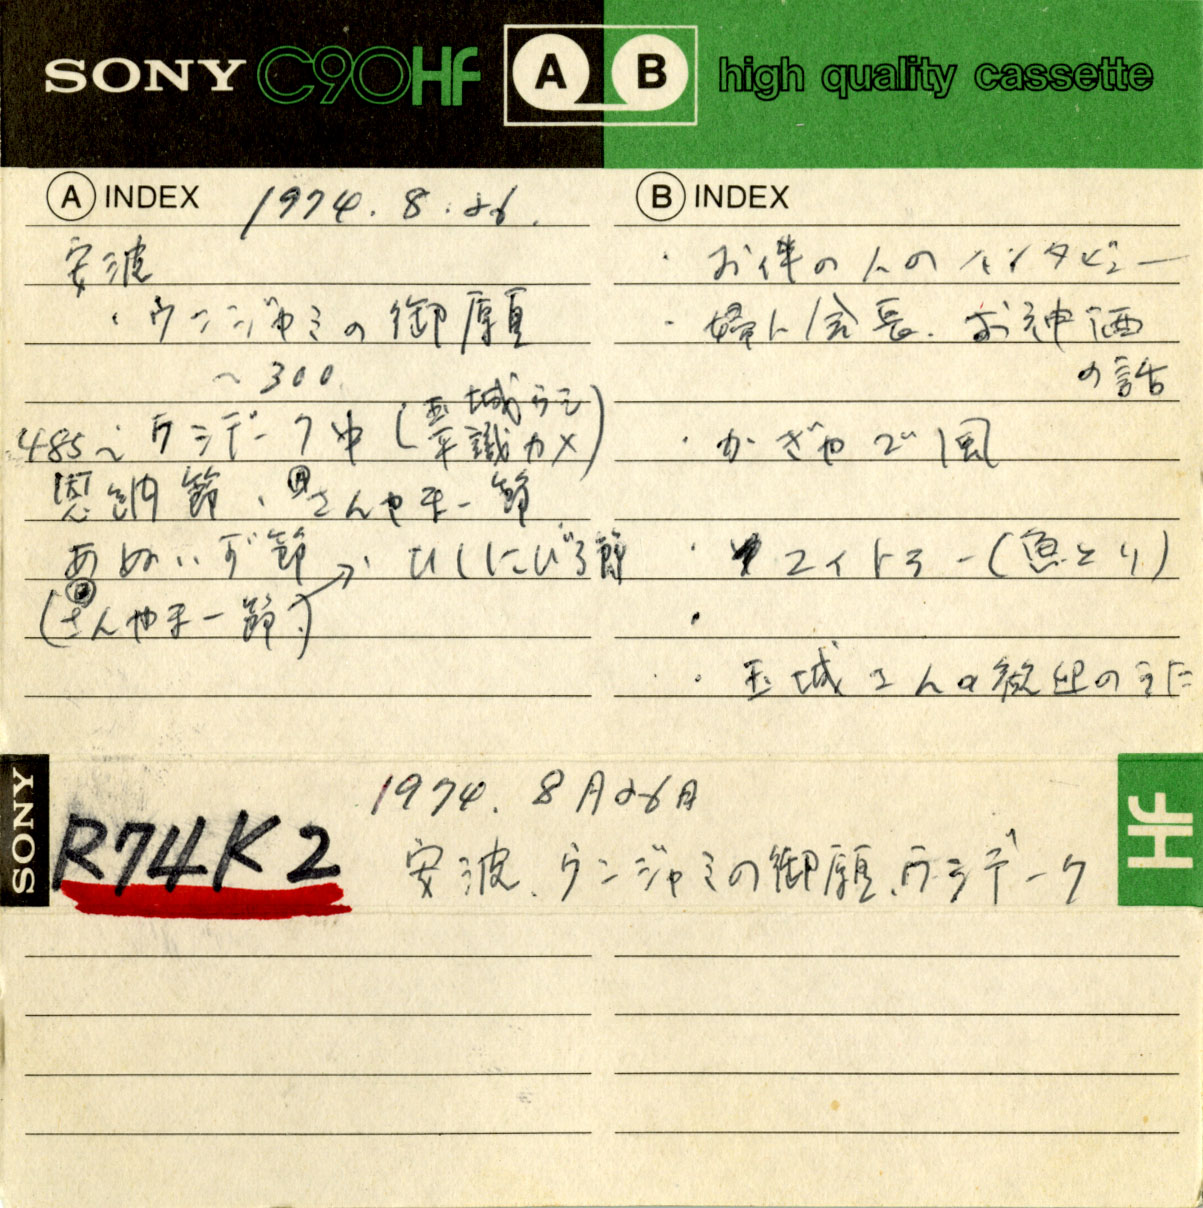 SONY C90HF A B high quality cassette
A INDEX 1974.8.26.
安波
・ウンジャミの御願
〜300
485〜 ウシデーク中 (玉城
平識カメ)
恩納節・さんやまー節
あぬいず節、ひじにびろ節
(さんやまー節)
B INDEX
・お伴の人のインタビュー
・婦人会長.お神酒
の話
・かぎやで風
・ユイトヨー(魚とり)
・
・玉城さんの
SONY
R74K2
1974.8月26日
安波、ウンジャミの御願、ウシデーク
HF